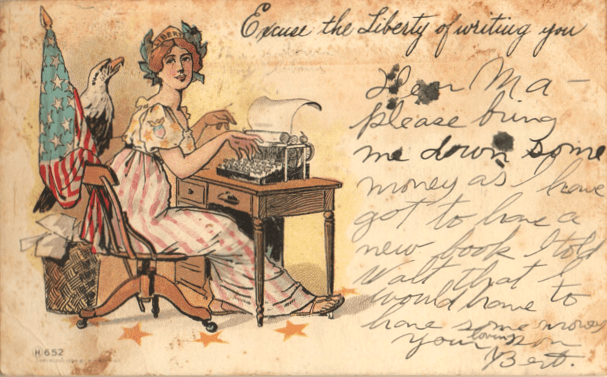 Excuse the Liberty of writing you
LIBERTY
Dear Ma -
please bring
me down some
money as I have
got to have a
new book I told
Walt that I
would have to
have some money
Your loving son
Bert.
H 652